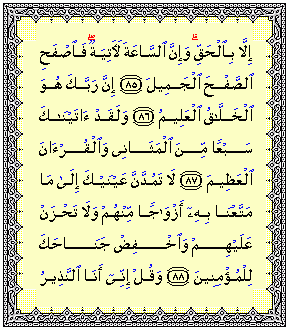 إِلَّا بِٱلْحَقِّۗ وَإِنَّ ٱلسَّاعَةَ لَأٓتِيَةٌۖ فَٱصْفَحِ
ٱلصَّفْحَ ٱلْجَمِيلَ ﴿٨٥﴾ إِنَّ رَبَّكَ هُوَ
ٱلْخَلَّٰقُ ٱلْعَلِيمُ ﴿٨٦﴾ وَلَقَدْ ءَاتَيْنَٰكَ
سَبْعًا مِّنَ ٱلْمَثَانِى وَٱلْقُرْءَانَ
ٱلْعَظِيمَ ﴿٨٧﴾ لَا تَمُدَّنَّ عَيْنَيْكَ إِلَىٰ مَا
مَتَّعْنَا بِهِۦٓ أَزْوَٰجًا مِّنْهُمْ وَلَا تَحْزَنْ
عَلَيْهِمْ وَٱخْفِضْ جَنَاحَكَ
لِلْمُؤْمِنِينَ ﴿٨٨﴾ وَقُلْ إِنِّىٓ أَنَا ٱلنَّذِيرُ